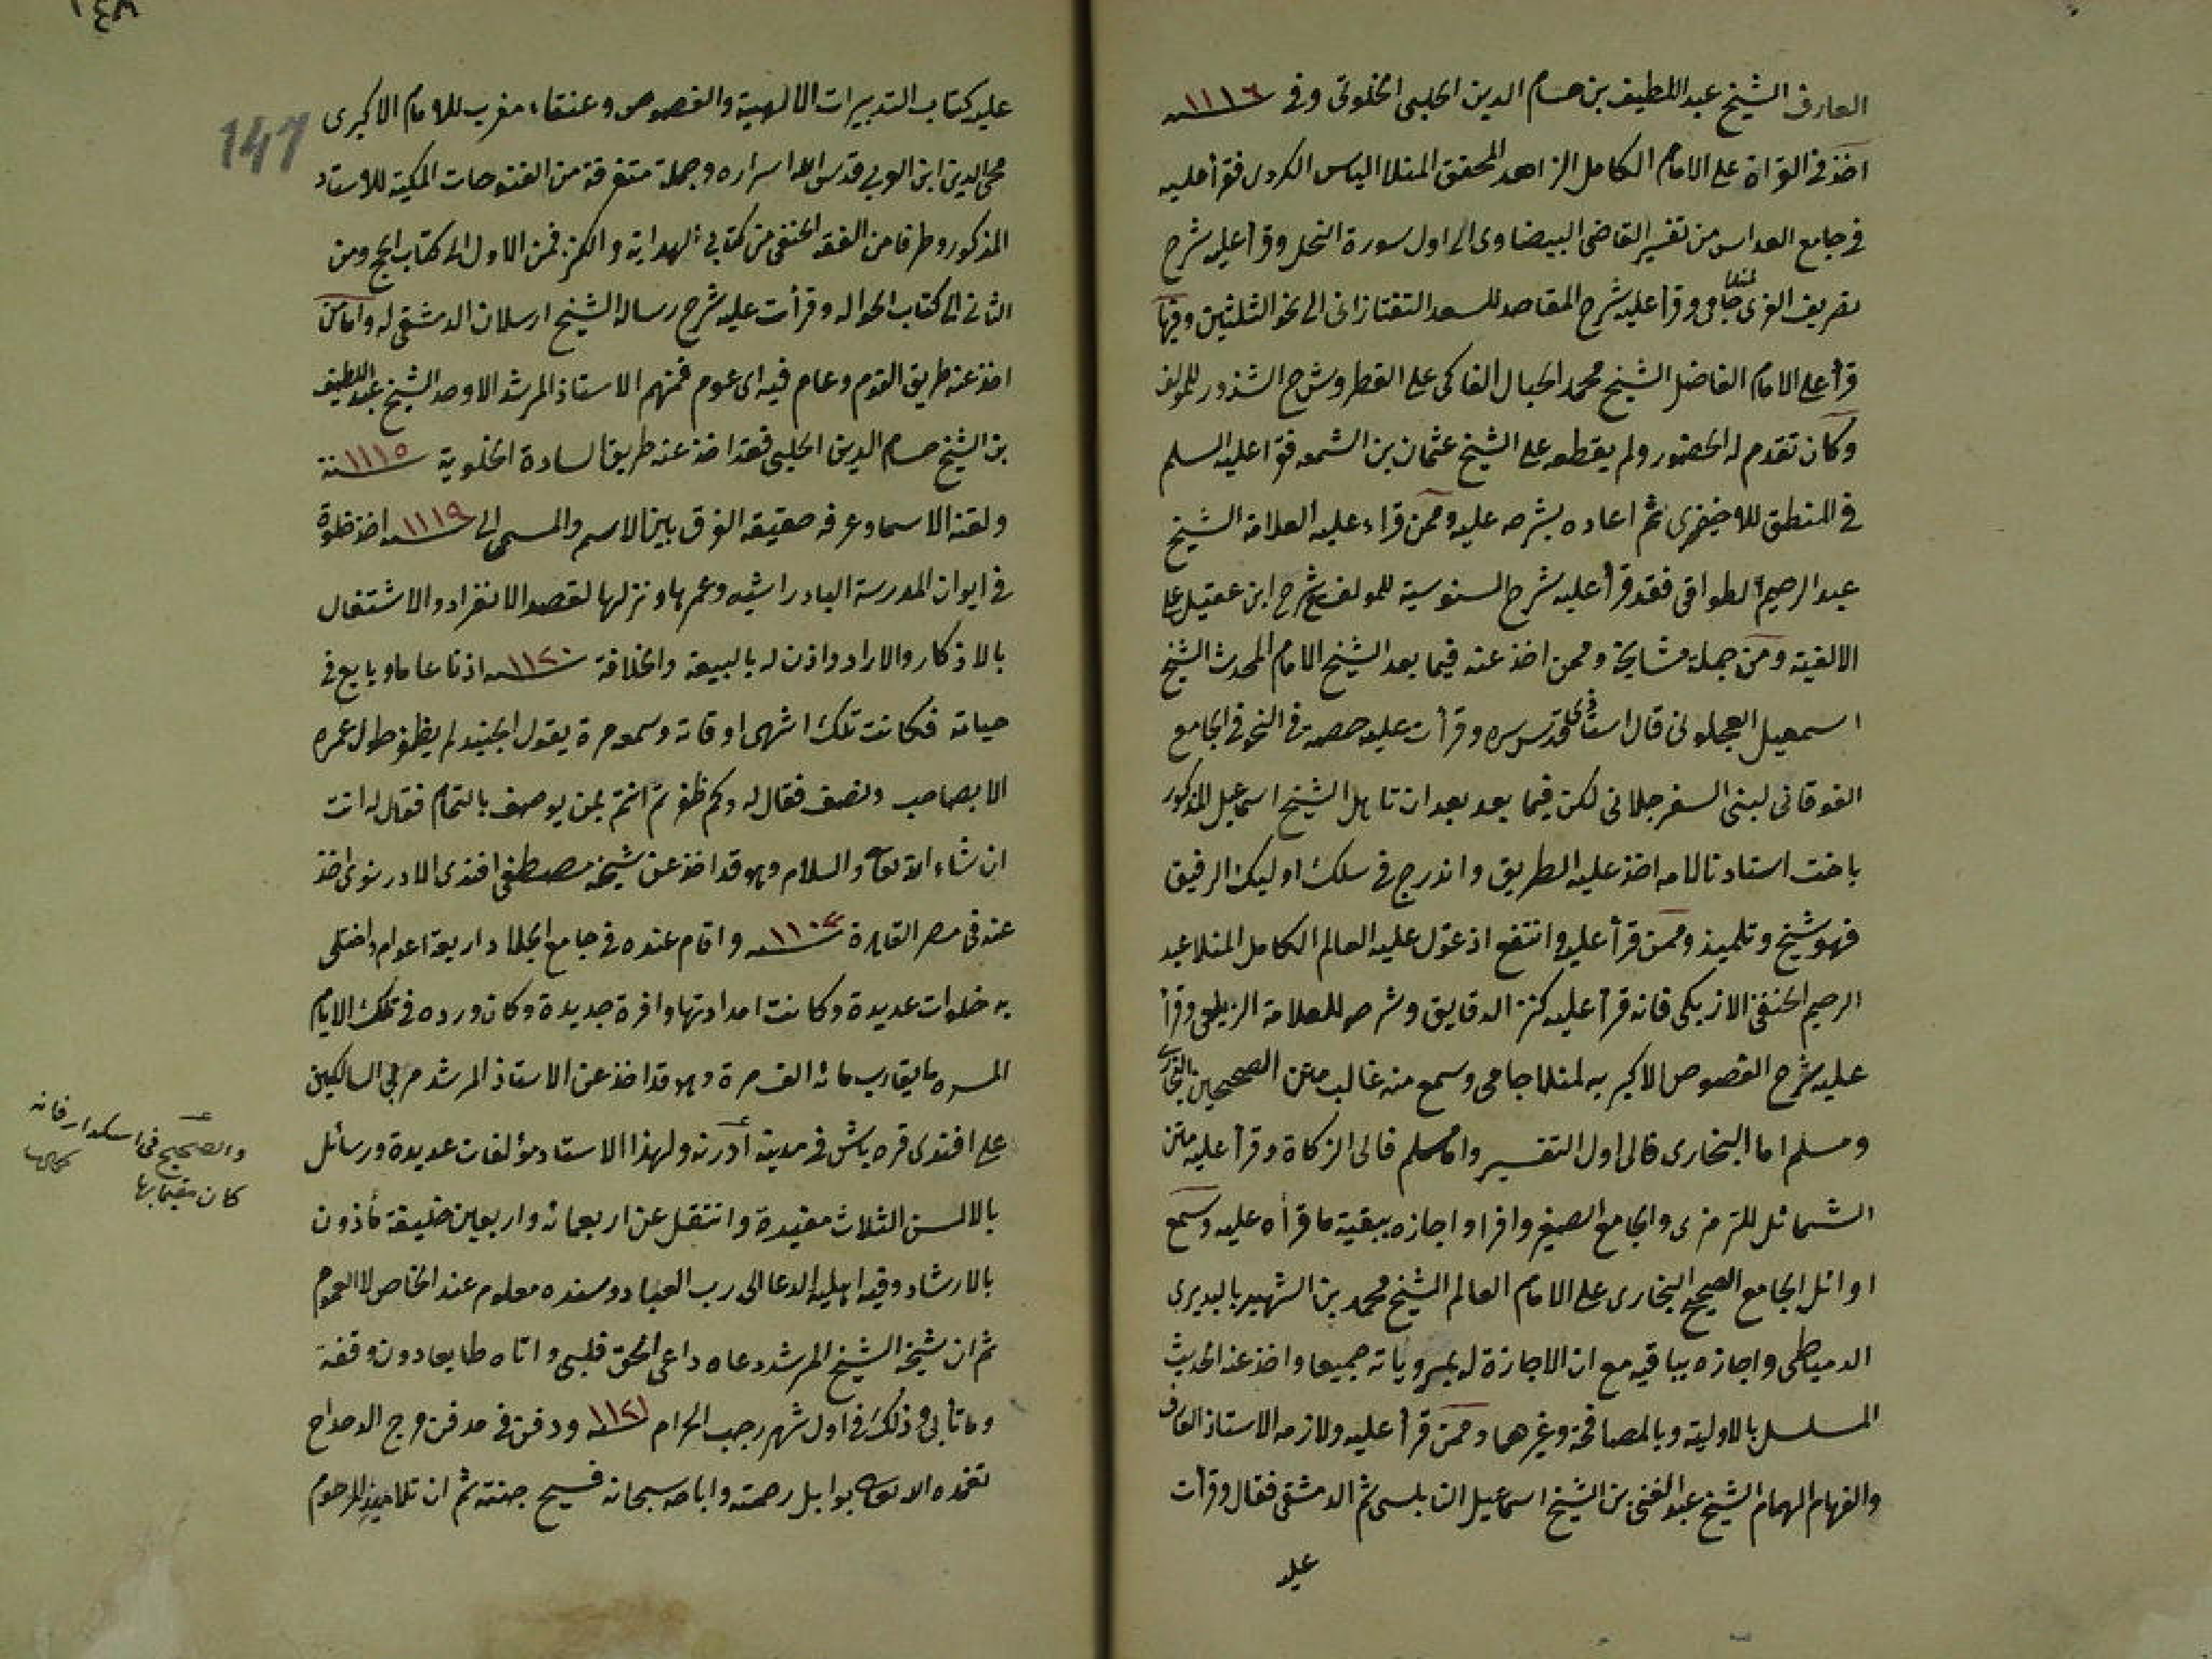 العارف الشيخ عبد اللطيف بن حسام الدين الحلبى الخلوتى وفى سنه ١١١٦
اخذ فى القراة على الامام الكامل الزاهد المحقق المنلا الياس الكردى فقرأ عليه
فى جامع العداس من تفسير القاضى البيضاوى الى اول سورة النحل وقرأ عليه شرح
تصريف العزى لمنلا جامى وقرأ عليه شرح المقاصد للسعد التفتازانى الى نحو الثلثين وفيها
قرأ على الامام الفاضل الشيخ محمد الحبال الفاكى على القطر وشرح الشذور للمولف
وكان تقدم له الحضور ولم يقطعه على الشيخ عثمان بن الشمعه فقرا عليه السلم
فى المنطق للاخضرى ثم اعاده بشرحه عليه وممن قراء عليه العلامة الشيخ
عبد الرحيم الطواقى فقد قرأ عليه شرح السنوسية للمولف وشرح ابن عقيل على
الالفية ومن جملة مشايخة وممن اخذ عنه فيما بعد الشيخ الامام المحدث الشيخ
اسمعيل العجلونى قال استاذى قدس سره وقرأت عليه حصه فى النحو فى الجامع
الفوقانى لبنى السفرجلانى لكن فيما بعد بعد ان تاهل الشيخ اسماعيل المذكور
باخت استادنا لامه اخذ عليه الطريق واندرج فى سلك اوليك الرفيق
فهو شيخ وتلميذ وممن قرأ عليه وانتفع اذ عوّل عليه العالم الكامل المنلا عبد
الرحيم الحنفى الازبكى فانه قرأ عليه كنز الدقايق وشرحه للعلامة الزيلعى وقرأ
عليه شرح الفصوص الاكبريه لمنلا جامى وسمع منه غالب متن الصحيحين البخارى
ومسلم اما البخارى فالى اول التفسير واما مسلم فالى الزكاة وقرأ عليه متن
الشمائل للترمزى والجامع الصغير وافرا واجازه ببقية ما قرأه عليه وسمع
اوائل الجامع الصحيح البخارى على الامام العالم الشيخ محمد بن الشهير بالبديرى
الدمياطى واجازه بباقيه مع ان الاجازة له بمروياته جميعا واخذ عنه الحديث
المسلسل بالاولية وبالمصافحة وغيرهما وممن قرأ عليه ولازمه الاستاذ العارف
والفهام الهمام الشيخ عبد الغنى بن الشيخ اسماعيل النابلسى ثم الدمشقى فقال وقرأت
عليه
١٤٨
147
عليه كتاب التدبيرات الالهية والفصوص وعنقاء مغرب للامام الاكبرى
محى الدين ابن العربى قدس الله اسراره وجملة متفرقة من الفتوحات المكية للاستاد
المذكور وطرفا من الفقه الحنفى من كتابى الهداية والكنز فمن الاول الى كتاب الحج ومن
الثانى الى كتاب الحواله وقرأت عليه شرح رسالة الشيخ ارسلان الدمشقى له واما من
اخذ عنه طريق القوم وعام فيه اى عوم فمنهم الاستاذ المرشد الاوحد الشيخ عبد اللطيف
بن الشيخ حسام الدين الحلبى فقد اخذ عنه طريق السادة الخلوتية سنة ١١١٥
ولقنه الاسما وعرفه حقيقه الفرق بين الاسم والمسمى الى سنه ١١١٩ اخذ خلوة
فى ايوان المدرسة البادرائيه وعمرها ونزلها لقصد الانفراد والاشتغال
بالاذكار والاراد واذن له بالبيعة والخلافة سنه ١١٢٠ اذنا عاما وبايع فى
حياته فكانت تلك اشهى اوقاته وسمعه مرة يقول الجنيد لم يظفر طول عمره
الا بصاحب ونصف فقال له وكم ظفرتم انتم بمن يوصف بالتمام فقال له انت
ان شاء الله تعالى والسلام وهو قد اخذ عن شيخه مصطفى افندى الادرنوى اخذ
عنه فى مصر القاهرة سنه ١١٠٢ واقام عنده فى جامع الجلاد اربعة اعوام واختلى
به خلوات عديدة وكانت امداداتها وافرة جديدة وكان ورده فى تلك الايام
المسره ما يقارب مائه الف مرة وهو قد اخذ عن الاستاذ المرشد مربى السالكين
على افندى قره باش فى مدينة أدرنه ولهذا الاستاد مؤلفات عديدة ورسائل
بالالسن الثلاث مفيدة وانتقل عن اربعمائه واربعين خليفة مأذون
بالارشاد وفيه اهليه الدعا الى رب العباد وسنده معلوم عند الخاص والعموم
ثم ان شيخه الشيخ المرشد دعاه داعى الحق فلبى واتاه طايعا دون وقفة
وما تأبى وذلك فى اول شهر رجب الحرام سنه ١١٢١ ودفن فى مدفن مرج الدحداح
تغمده الله تعالى بوابل رحمته واباحه سبحانه فسيح جنته ثم ان تلاميذ المرحوم
والصحيح فى اسكدار فانه
كان مقيما بها